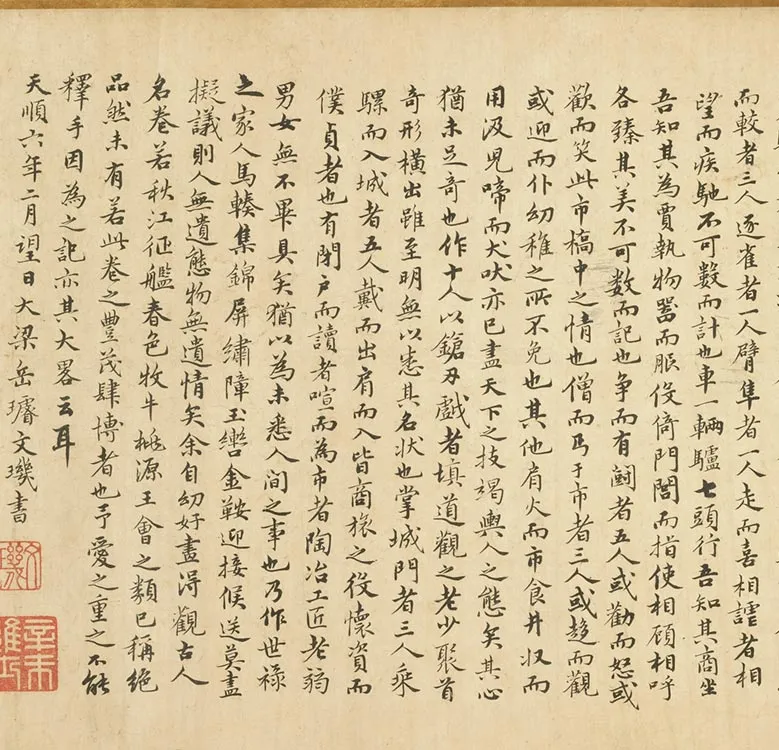 而較者三人逐雀者一人臂隼者一人走而喜相謔者相
望而疾馳不可數而計也車一輛驢七頭行吾知其商坐
吾知其為賈執物器而脤伇倚門閭而指使相顧相呼
各臻其美不可數而記也爭而有鬪者五人或勸而怒或
歡而笑此市槁中之情也僧而丐于市者三人或趍而觀
或迎而仆幼稚之所不免也其他肩火而市食井汲而
用汲兒啼而犬吠亦已盡天下之技竭輿人之態矣其心
猶未足奇也作十人以鎗刃戲者填道觀之老少聚首
奇形橫出雖至明無以悉其名状也掌城門者三人乘
騾而入城者五人戴而出肩而入皆商旅之役懷資而
僕貞者也有閉戶而讀者喧而為市者陶冶工匠老翁
男女無不畢具矣猶以為未悉人间之事也乃作世祿
之家人馬輳集錦屏繡障玉轡金鞍迎接候送莫盡
擬議則人無遺態物無遺情矣余自幼好畫得觀古人
名卷若秋江征艦春色牧牛桃源王會之類已稱絕
品然未有若此卷之豐茂肆博者也予愛之重之不能
釋手因為之記亦其大畧云耳
天順六年二月望日大梁岳璿文璣書
文璣
辛未進士